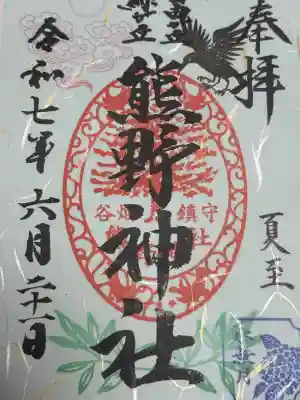 奉拝
夏至
熊野神社
鎮守
令和七年六月二十一日